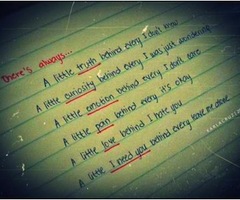 there's always...
A little truth behind every I don't know
A little curiosity behind every I was just wondering
A little emotion behind every I don't care
A little pain behind every it's okay
A little love behind I hate you
A little I need you behind every leave me alone